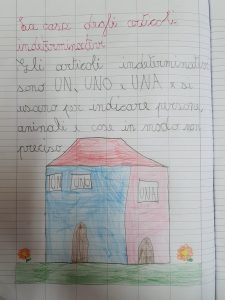 La casa degli articoli
indeterminativi
Gli articoli indeterminativi
sono UN, UNO e UNA e si
usano per indicare persone,
animali e cose in modo non
preciso.
UN UNO UNA